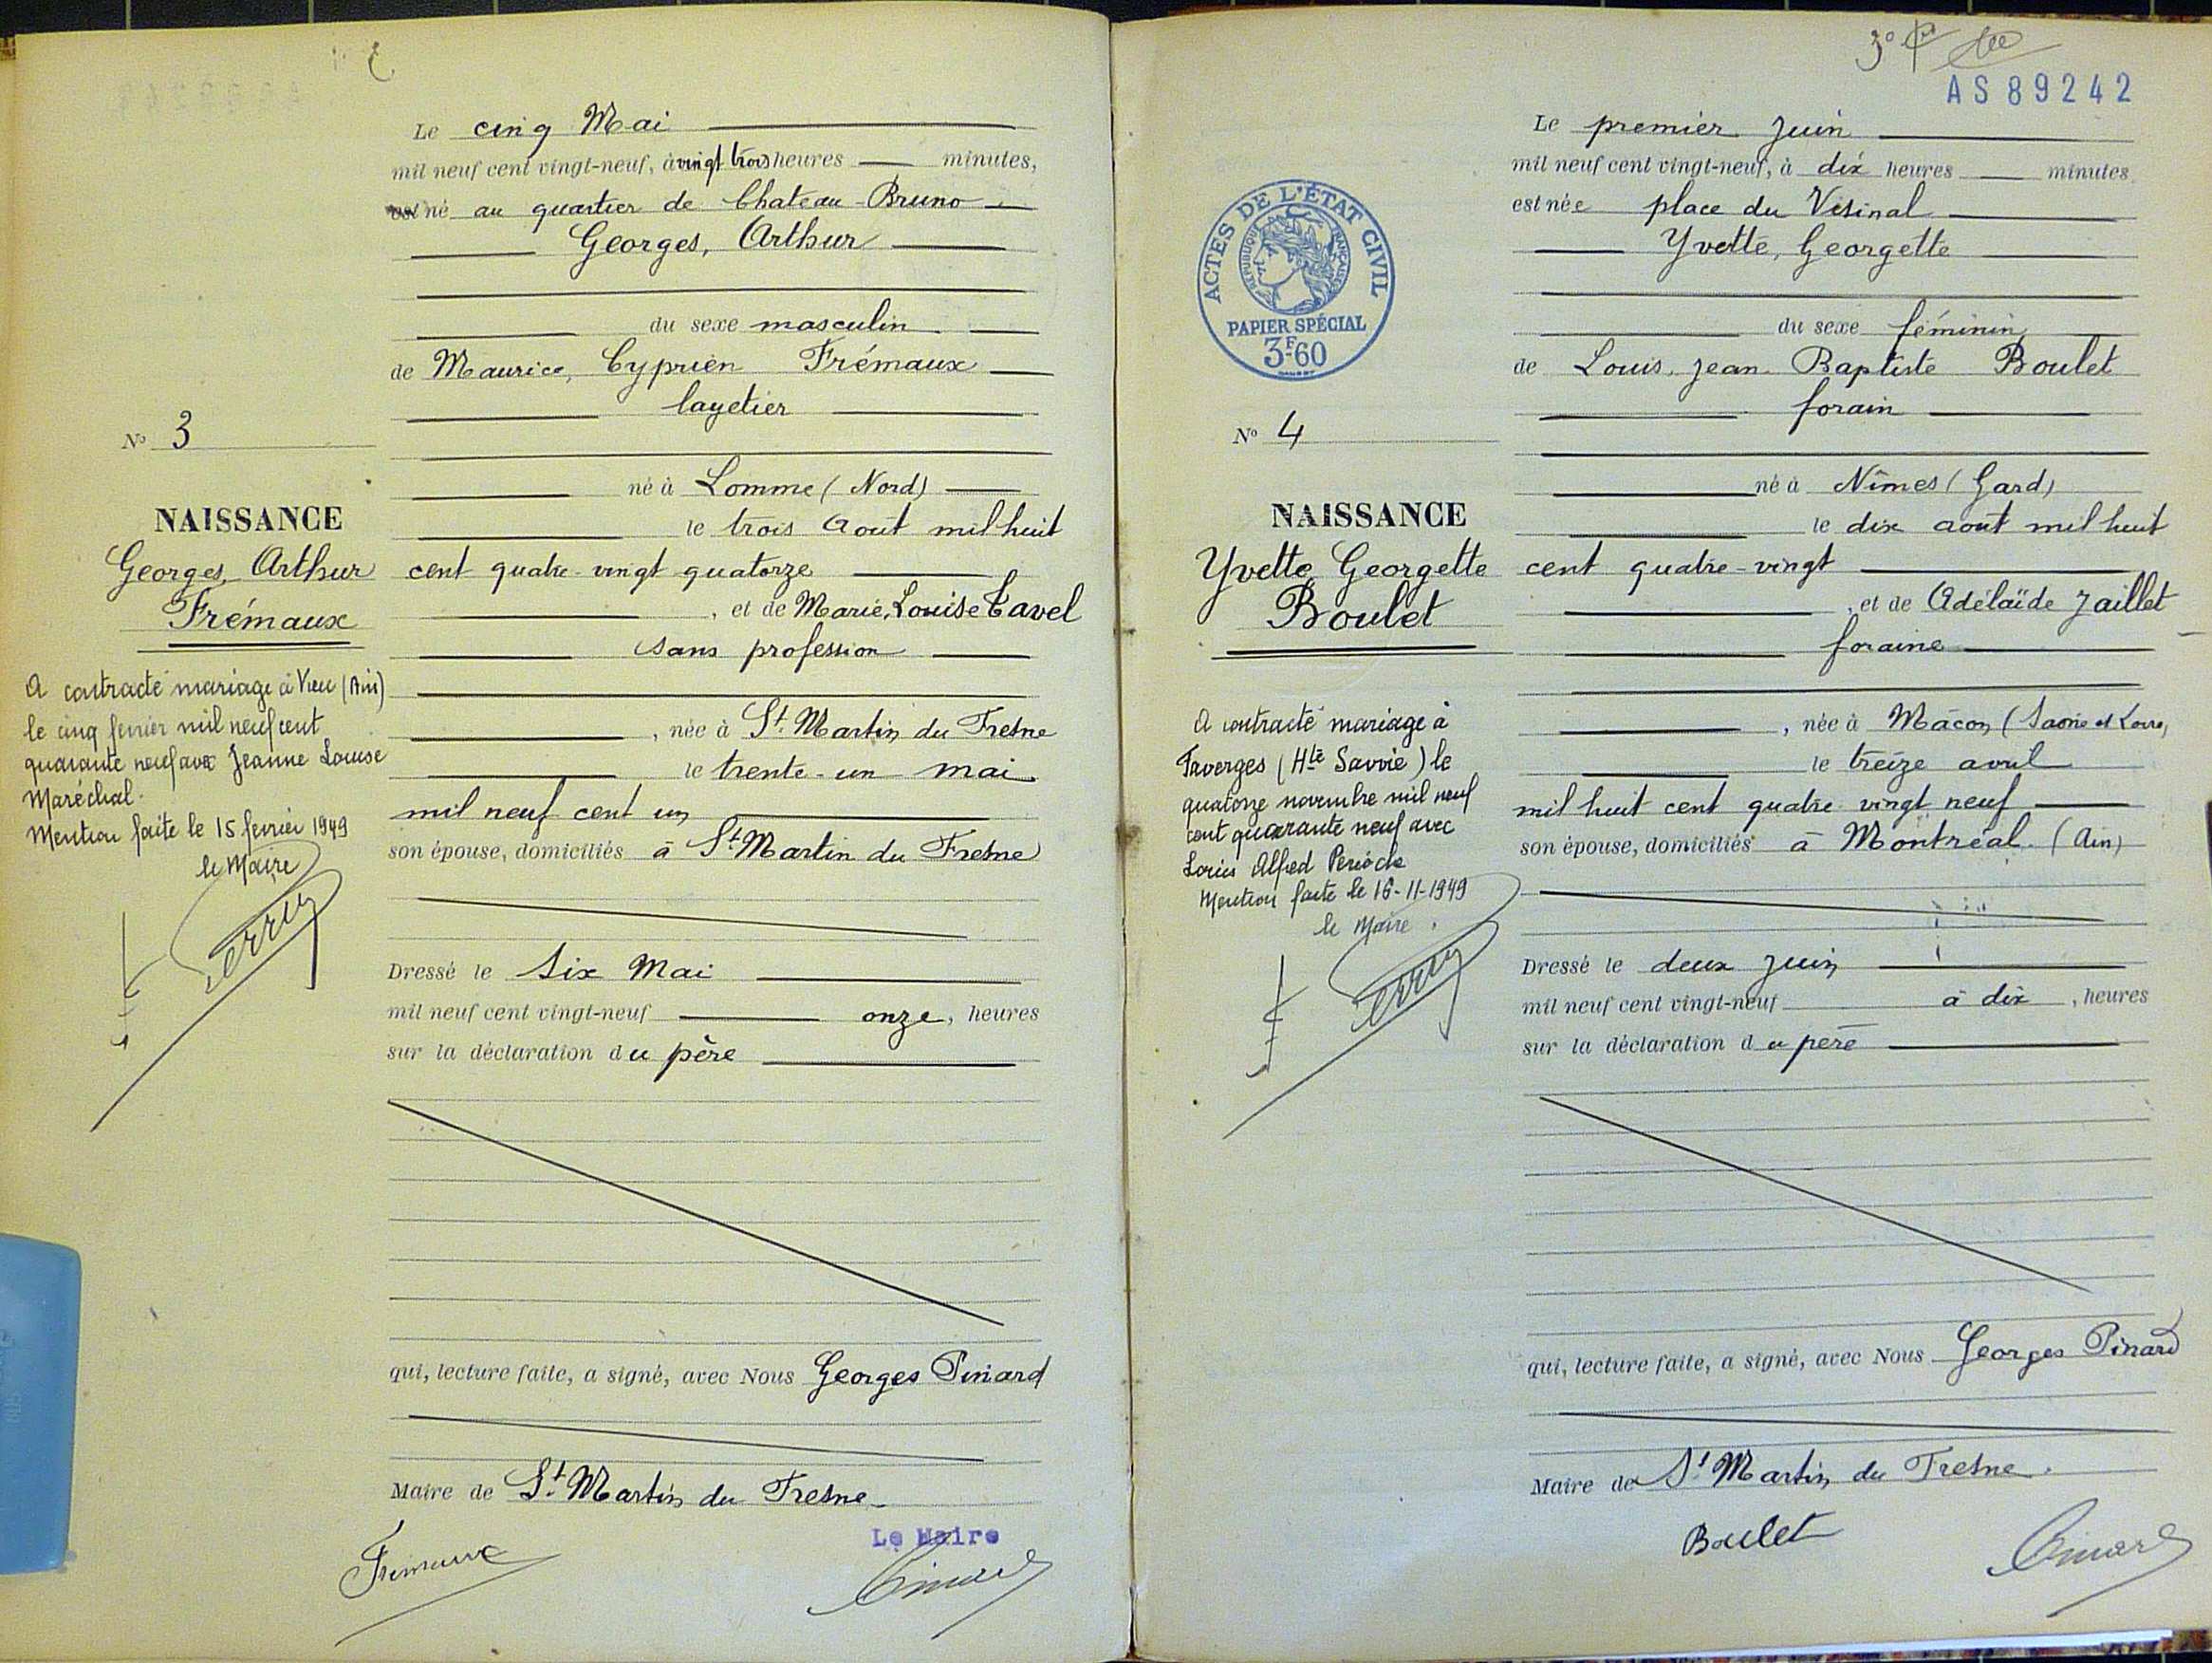 Le cinq Mai
mil neuf cent vingt-neuf, à vingt trois heures minutes,
est né au quartier de Chateau-Bruno
Georges, Arthur
du sexe masculin
de Maurice, Cyprien Frémaux
layetier
né à Lomme (Nord)
le trois Aout mil huit
cent quatre-vingt quatorze
, et de Marie, Louise Tavel
sans profession
, née à St Martin du Fresne
le trente-un mai
mil neuf cent un
son épouse, domiciliés à St Martin du Fresne
Dressé le Six Mai
mil neuf cent vingt-neuf onze, heures
sur la déclaration du père
qui, lecture faite, a signé, avec Nous Georges Pinard
Maire de St Martin du Fresne
Le Maire
Frémaux
Pinard
No 3
NAISSANCE
Georges, Arthur
Frémaux
A contracté mariage à Vieu (Ain)
le cinq fevrier mil neuf cent
quarante neuf avec Jeanne Louise
Maréchal.
Mention faite le 15 fevrier 1949
le Maire
AS 89242
ACTES DE L'ÉTAT CIVIL
RÉPUBLIQUE FRANÇAISE
PAPIER SPÉCIAL
3F60
Le premier Juin
mil neuf cent vingt-neuf, à dix heures minutes
est née place du Vésinal
Yvette, Georgette
du sexe féminin
de Louis, Jean-Baptiste Boulet
forain
né à Nîmes (Gard)
le dix aout mil huit
cent quatre-vingt
, et de Adélaïde Jaillet
foraine
, née à Mâcon (Saône et Loire)
le treize avril
mil huit cent quatre vingt neuf
son épouse, domiciliés à Montréal. (Ain)
Dressé le deux Juin
mil neuf cent vingt-neuf à dix, heures
sur la déclaration du père
qui, lecture faite, a signé, avec Nous Georges Pinard
Maire de St Martin du Fresne.
Boulet
Pinard
No 4
NAISSANCE
Yvette Georgette
Boulet
A contracté mariage à
Faverges (Hte Savoie) le
quatorze novembre mil neuf
cent quarante neuf avec
Louis Alfred
Mention faite le 16-11-1949
le Maire.